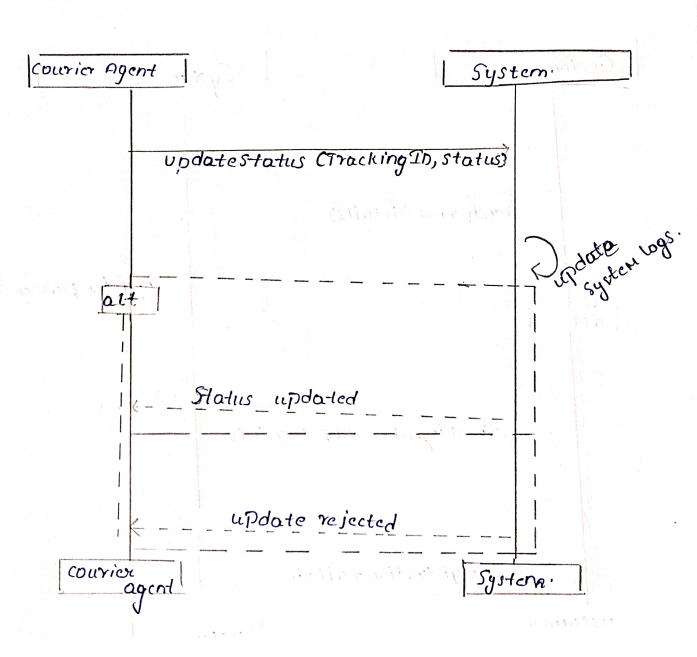 Courier Agent
System.
updateStatus (TrackingID, status)
update
system logs.
alt
Status updated
update rejected
courier
agent
System.